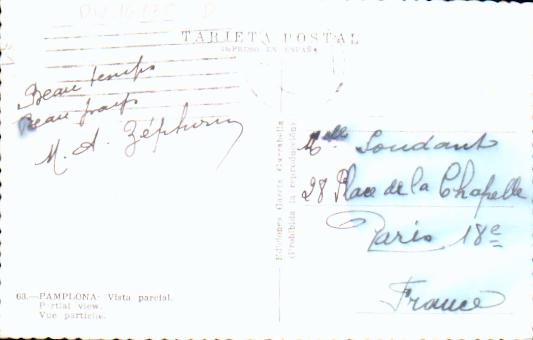 TARJETA POSTAL
IMPRESO EN ESPAÑA
Beau temps
Beau
M. A.
Ediciones García Garrabella
(Prohibida la reproducción)
Melle Loudant
28 Place de la Chapelle
Paris 18e
France
63.—PAMPLONA- Vista parcial.
Partial view.
Vue partielle.